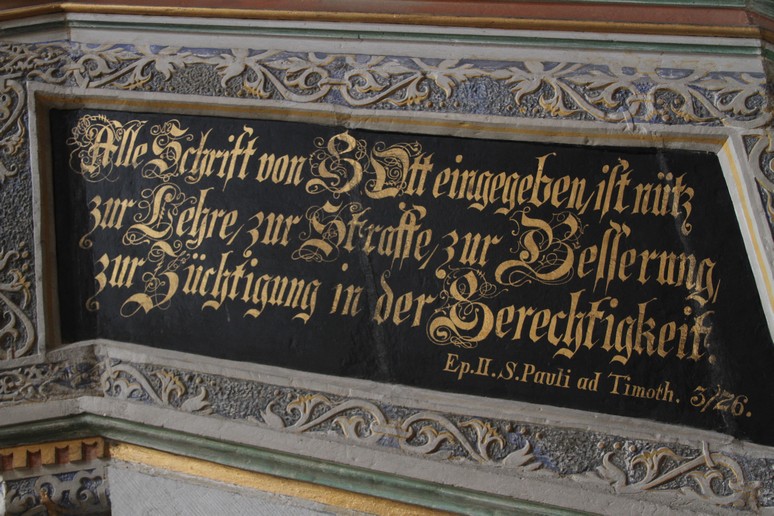 Alle Schrift von GOtt eingegeben, ist nütz
zur Lehre, zur Straffe, zur Besserung,
zur Züchtigung in der Gerechtigkeit.
Ep. II. S. Pauli ad Timoth.